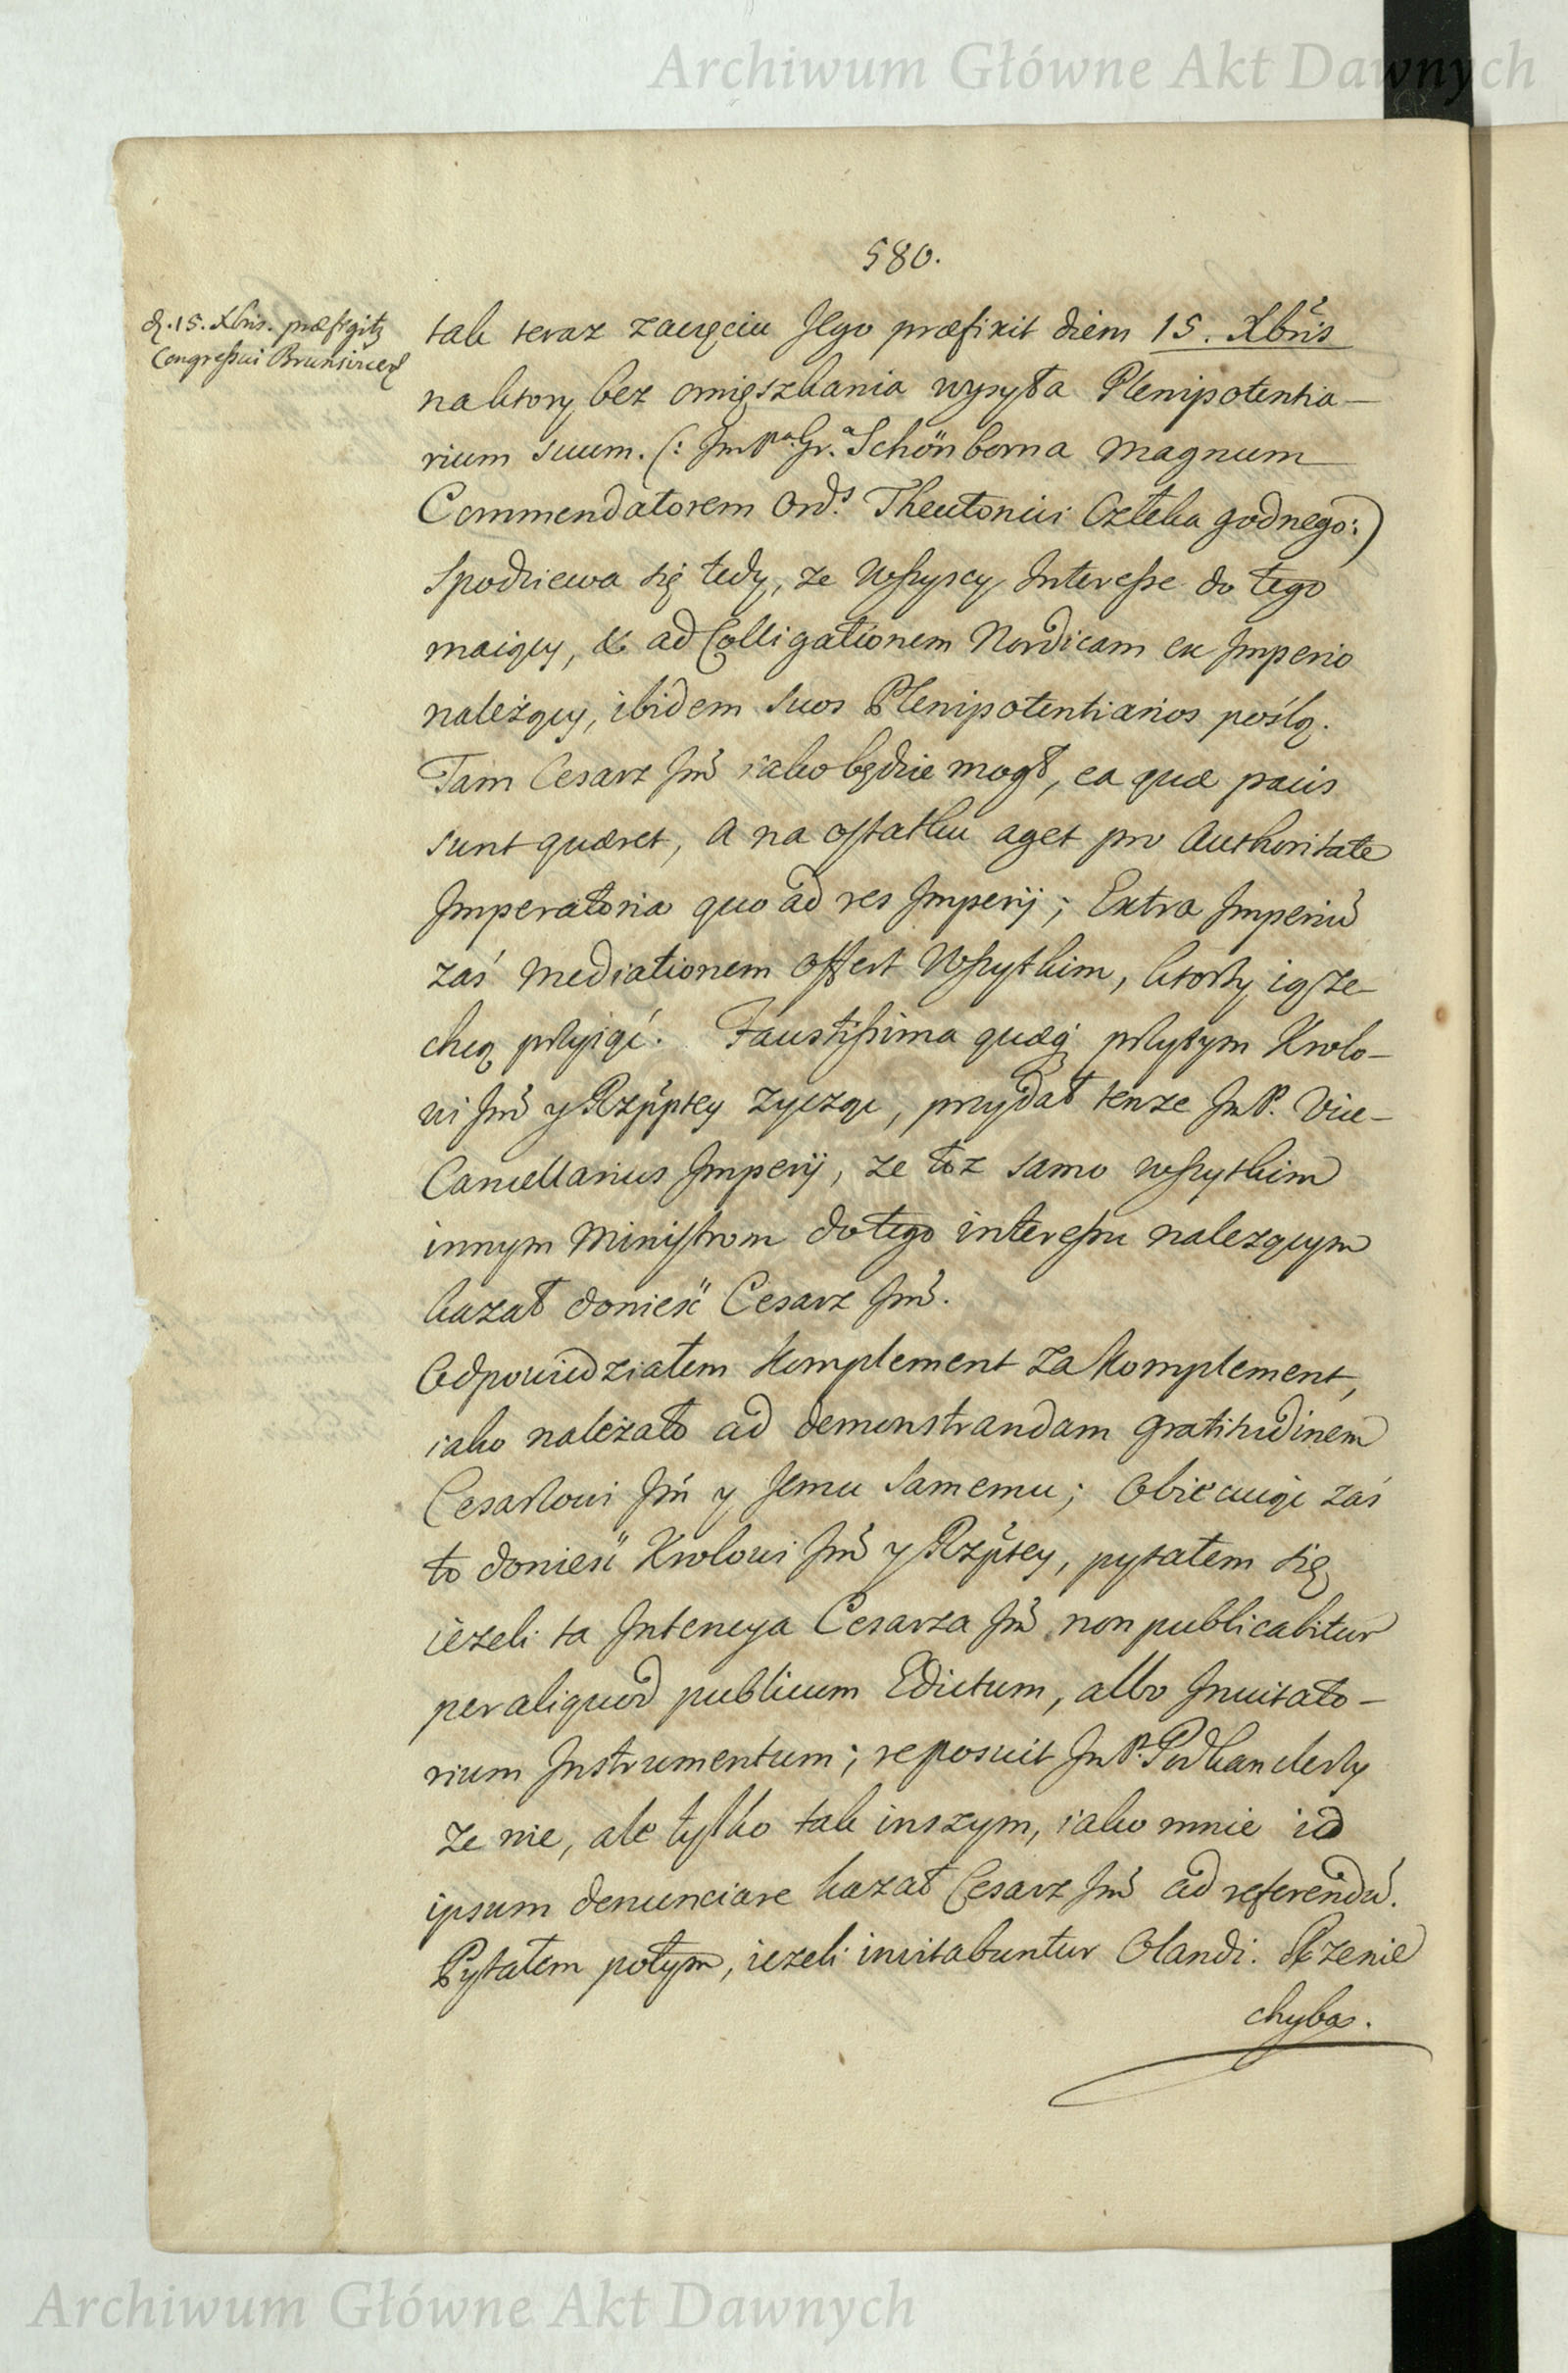 Archiwum Główne Akt Dawnych
580.
d. 15. Xbris. præfigitz
Congreſsui Brunsiuceñ
tak teraz zaczęciu Jego præfixit diem 15. Xbris
na ktory bez omięszkania wysyła Plenipotentia-
rium suum. (: JmPa. Gr.a Schönborna Magnum
Commendatorem Ord.s Theutonici Człeka godnego:)
Spodziewa się tedy, ze wſzyscy Intereſse do tego
maiący, & ad Colligationem Nordicam ex Imperio
należący, ibidem suos Plenipotentiarios poślą.
Tam Cesarz Jmć iako będzie mogł, ea quæ pacis
sunt quæret, a na oſtatku aget pro Authoritate
Imperatoria quo ad res Imperij; Extra Imperiũ
zaś Mediationem offert Wſzytkim, ktorzy ią ze-
chcą przyiąć. Faustiſsima quæq; przytym Krolo-
wi Jmć y Rzpptey zycząc, przydał tenze JmP. Vice-
Cancellarius Imperij, ze toz samo wſzytkim
innym Miniſtrom do tego intereſsu nalezącym
kazał donieść Cesarz Jmć.
Odpowiedziałem Komplement za Komplement,
iako należało ad demonstrandam gratitudinem
Cesarzowi Jmć y Jemu samemu; Obiecuiąc zaś
to donieść Krolowi Jmć y Rzptey, pytałem się
ieżeli ta Intencya Cesarza Jmć non publicabitur
per aliquod publicum Edictum, albo Inuitato-
rium Instrumentum; reposuit JmP. Podkanclerzy
ze nie, ale tylko tak inszym, iako mnie id
ipsum denunciare kazał Cesarz Jmć ad referendũ.
Pytałem potym, iezeli inuitabuntur Olandi. Rze nie
chyba.
Archiwum Główne Akt Dawnych